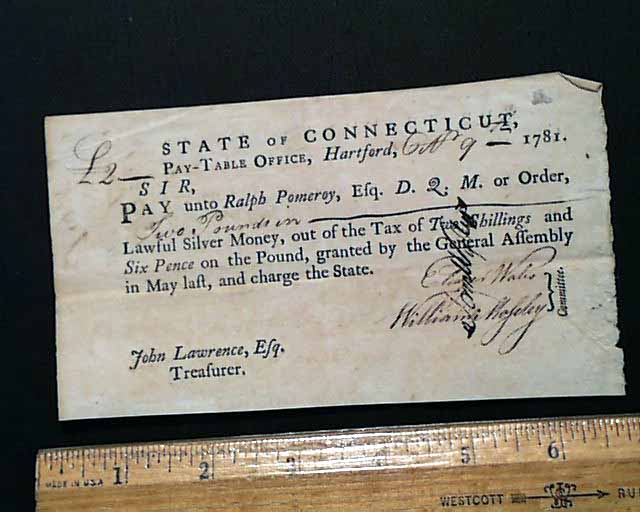 STATE OF CONNECTICUT,
£2 PAY-TABLE OFFICE, Hartford, 9th 1781.
SIR,
PAY unto Ralph Pomeroy, Esq. D. Q. M. or Order,
Two Pounds in
Lawful Silver Money, out of the Tax of Two Shillings and
Six Pence on the Pound, granted by the General Assembly
in May laſt, and charge the State.
Wales
William Moseley
Committee.
John Lawrence, Eſq.
Treaſurer.
MADE IN U.S.A
1 2 3 4 5 6
WESTCOTT RU